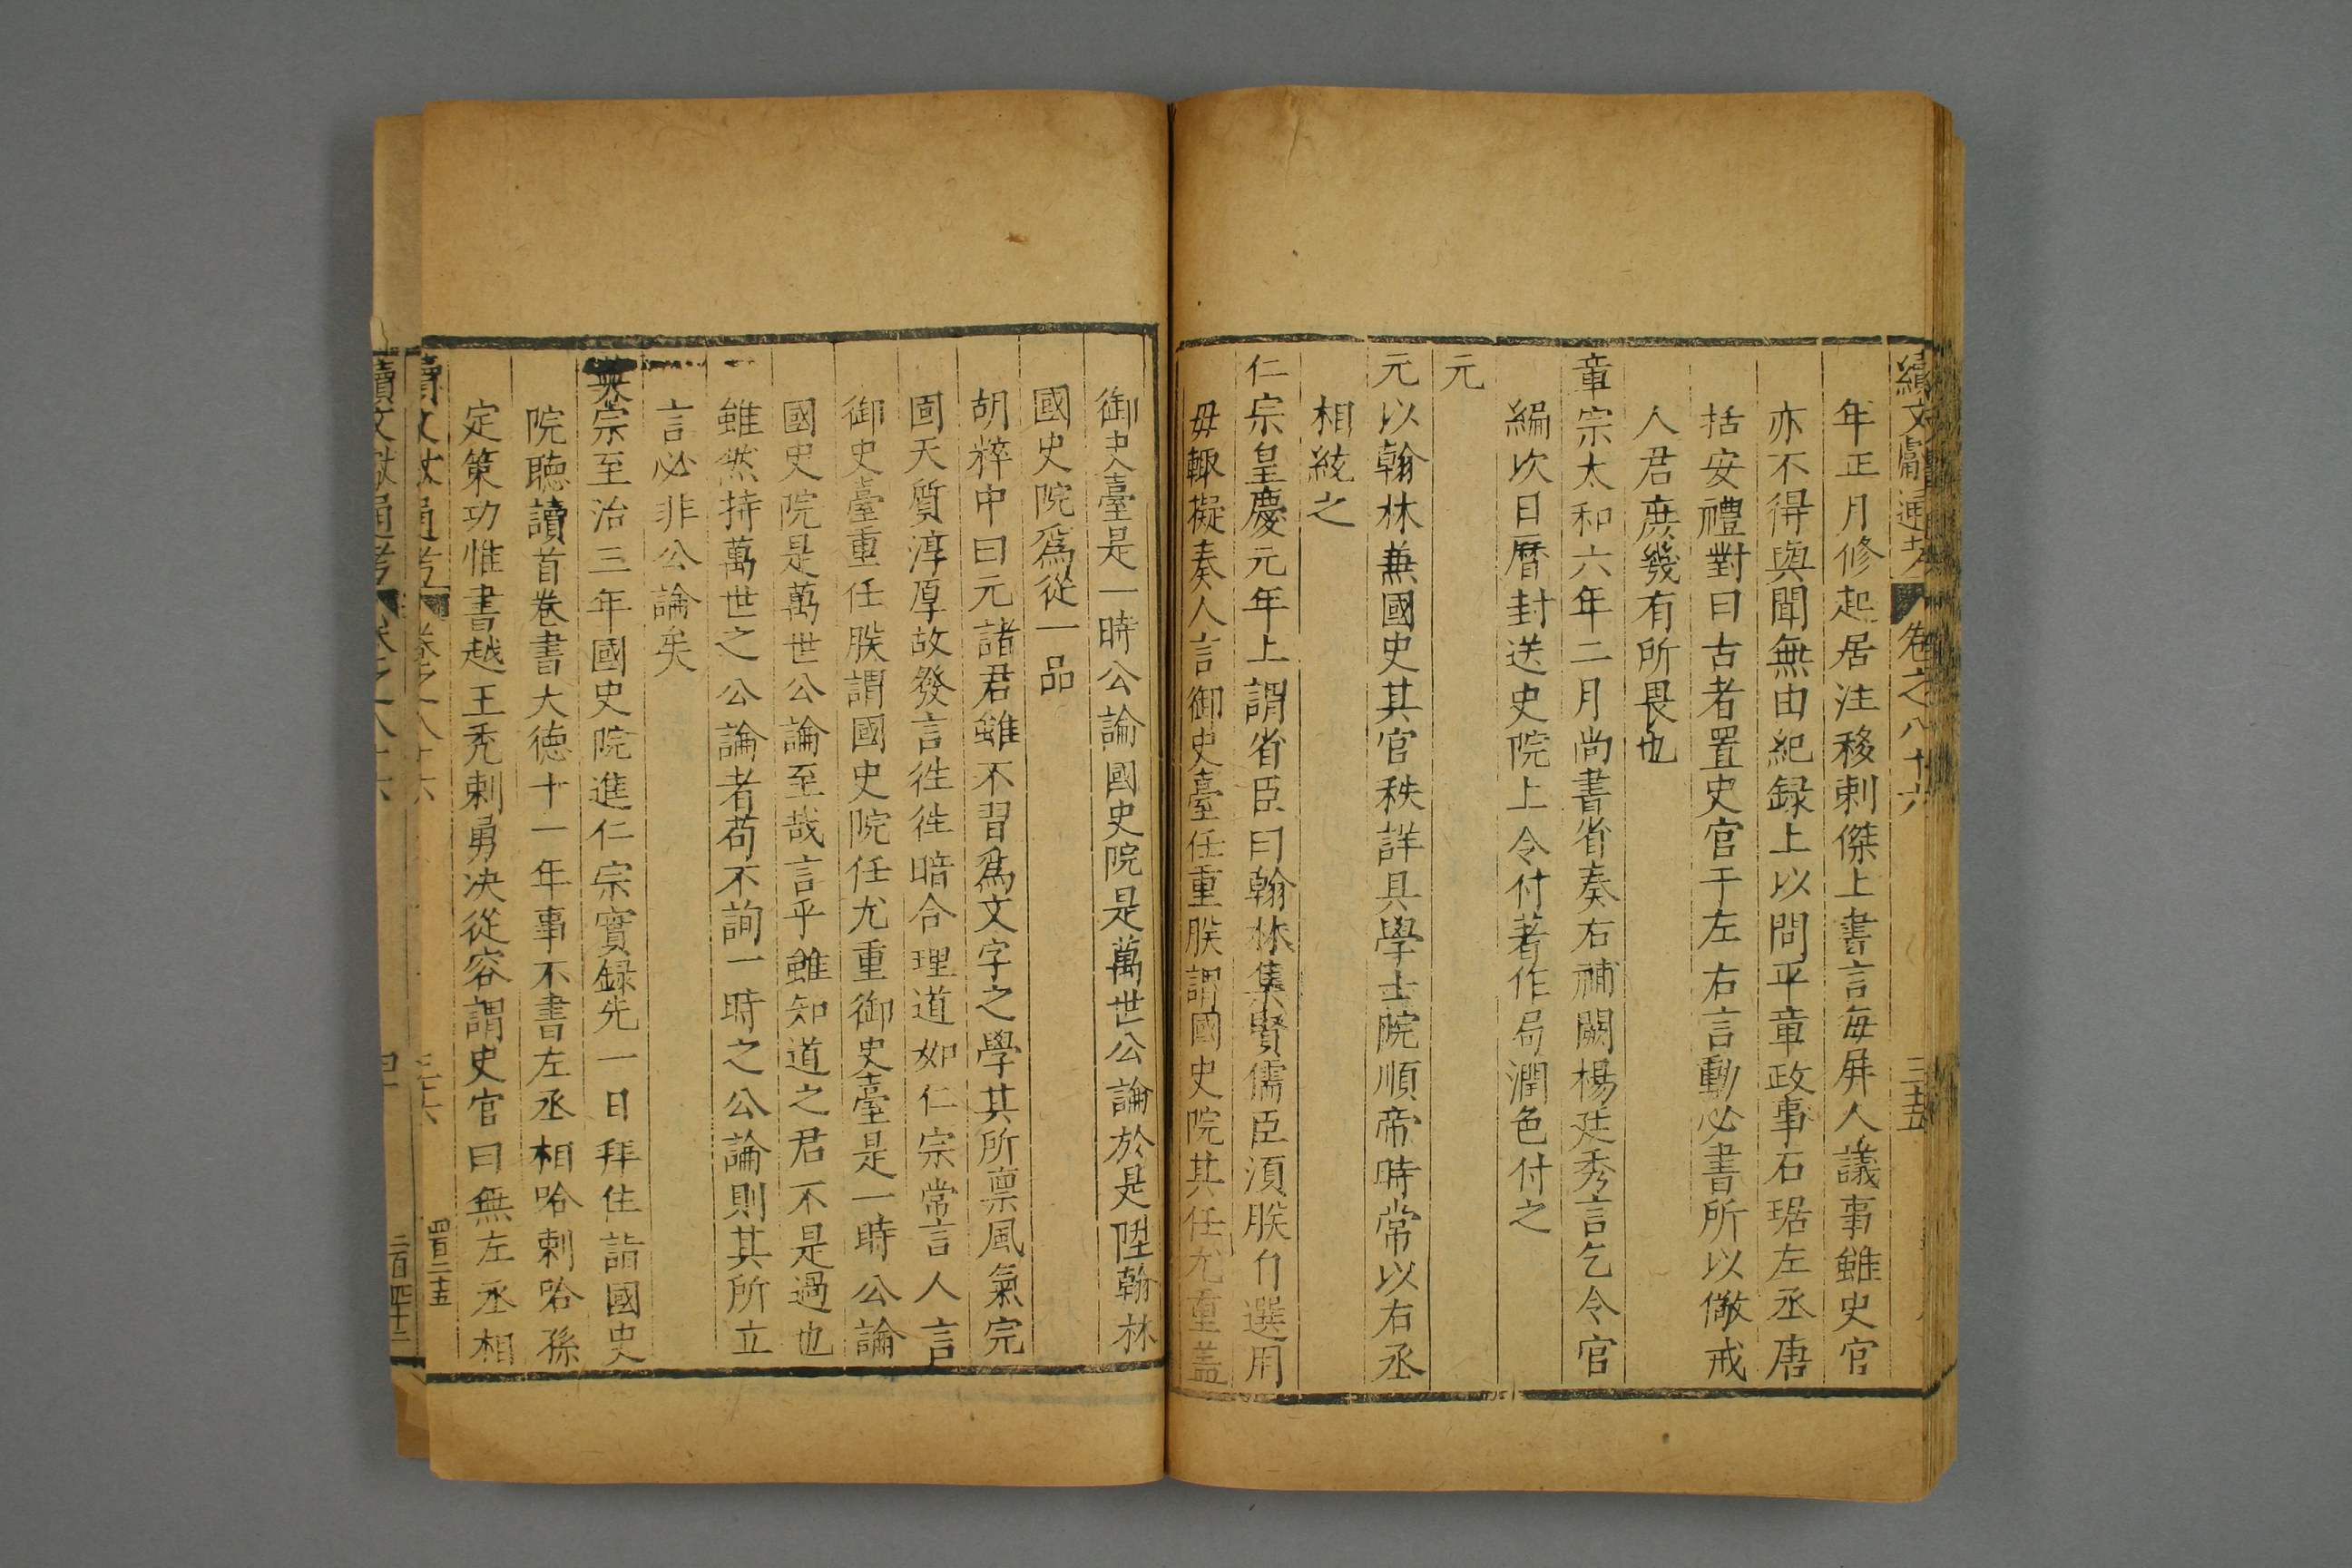 續文獻通考 卷之八十六
年正月修起居注移剌傑上書言每屏人議事雖史官
亦不得與聞無由紀録上以問平章政事石琚左丞唐
括安禮對曰古者置史官于左右言動必書所以儆戒
人君庶幾有所畏也
章宗太和六年二月尚書省奏右補闕楊廷秀言乞令官
編次日曆封送史院上令付著作局潤色付之
元
元以翰林兼國史其官秩詳具學士院順帝時常以右丞
相統之
仁宗皇慶元年上謂省臣曰翰林集賢儒臣須朕自選用
毋輙擬奏人言御史臺任重朕謂國史院其任尤重蓋
御史臺是一時公論國史院是萬世公論於是陞翰林
國史院爲從一品
胡粹中曰元諸君雖不習爲文字之學其所禀風氣完
固天質淳厚故發言徃徃暗合理道如仁宗常言人言
御史臺重任朕謂國史院任尤重御史臺是一時公論
國史院是萬世公論至哉言乎雖知道之君不是過也
雖然持萬世之公論者苟不詢一時之公論則其所立
言必非公論矣
英宗至治三年國史院進仁宗實録先一日拜住詣國史
院聴讀首卷書大德十一年事不書左丞相哈剌哈孫
定策功惟書越王禿剌勇决從容謂史官曰無左丞相
四百二十五
續文獻通考 卷之八十六
二百四十二